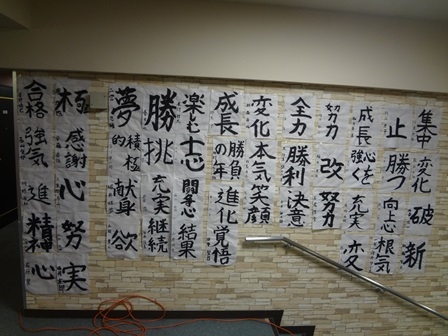 集中 変化 破 新
止 勝つ 向上心 根気
成長 心を強く 充実 変
努力 改 努力
全力 勝利 決意
変化 本気 笑顔
成長 勝負の年 進化 覚悟
楽しむ 士心 闘争心 結果
勝 挑 充実 継続
夢 積極的 献身 欲
極 感謝 心 努 実
合格 強気 進 精神 心